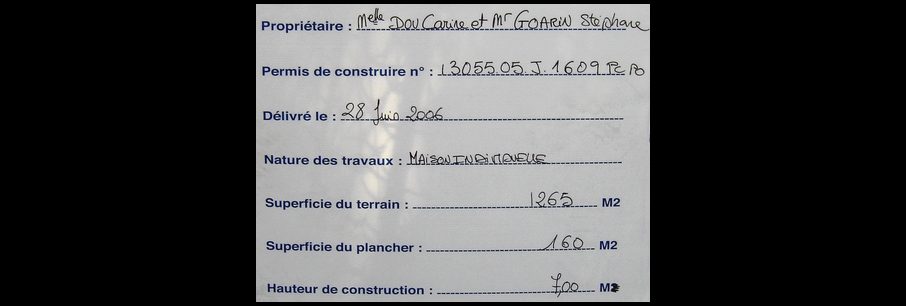 Propriétaire : Melle DOU Carine et Mr GOARIN Stéphane
Permis de construire n° : 13055.05.J.1609 Pc Po
Délivré le : 28 Juin 2006
Nature des travaux : MAISON INDIVIDUELLE
Superficie du terrain : 1265 M2
Superficie du plancher : 160 M2
Hauteur de construction : 7,00 M